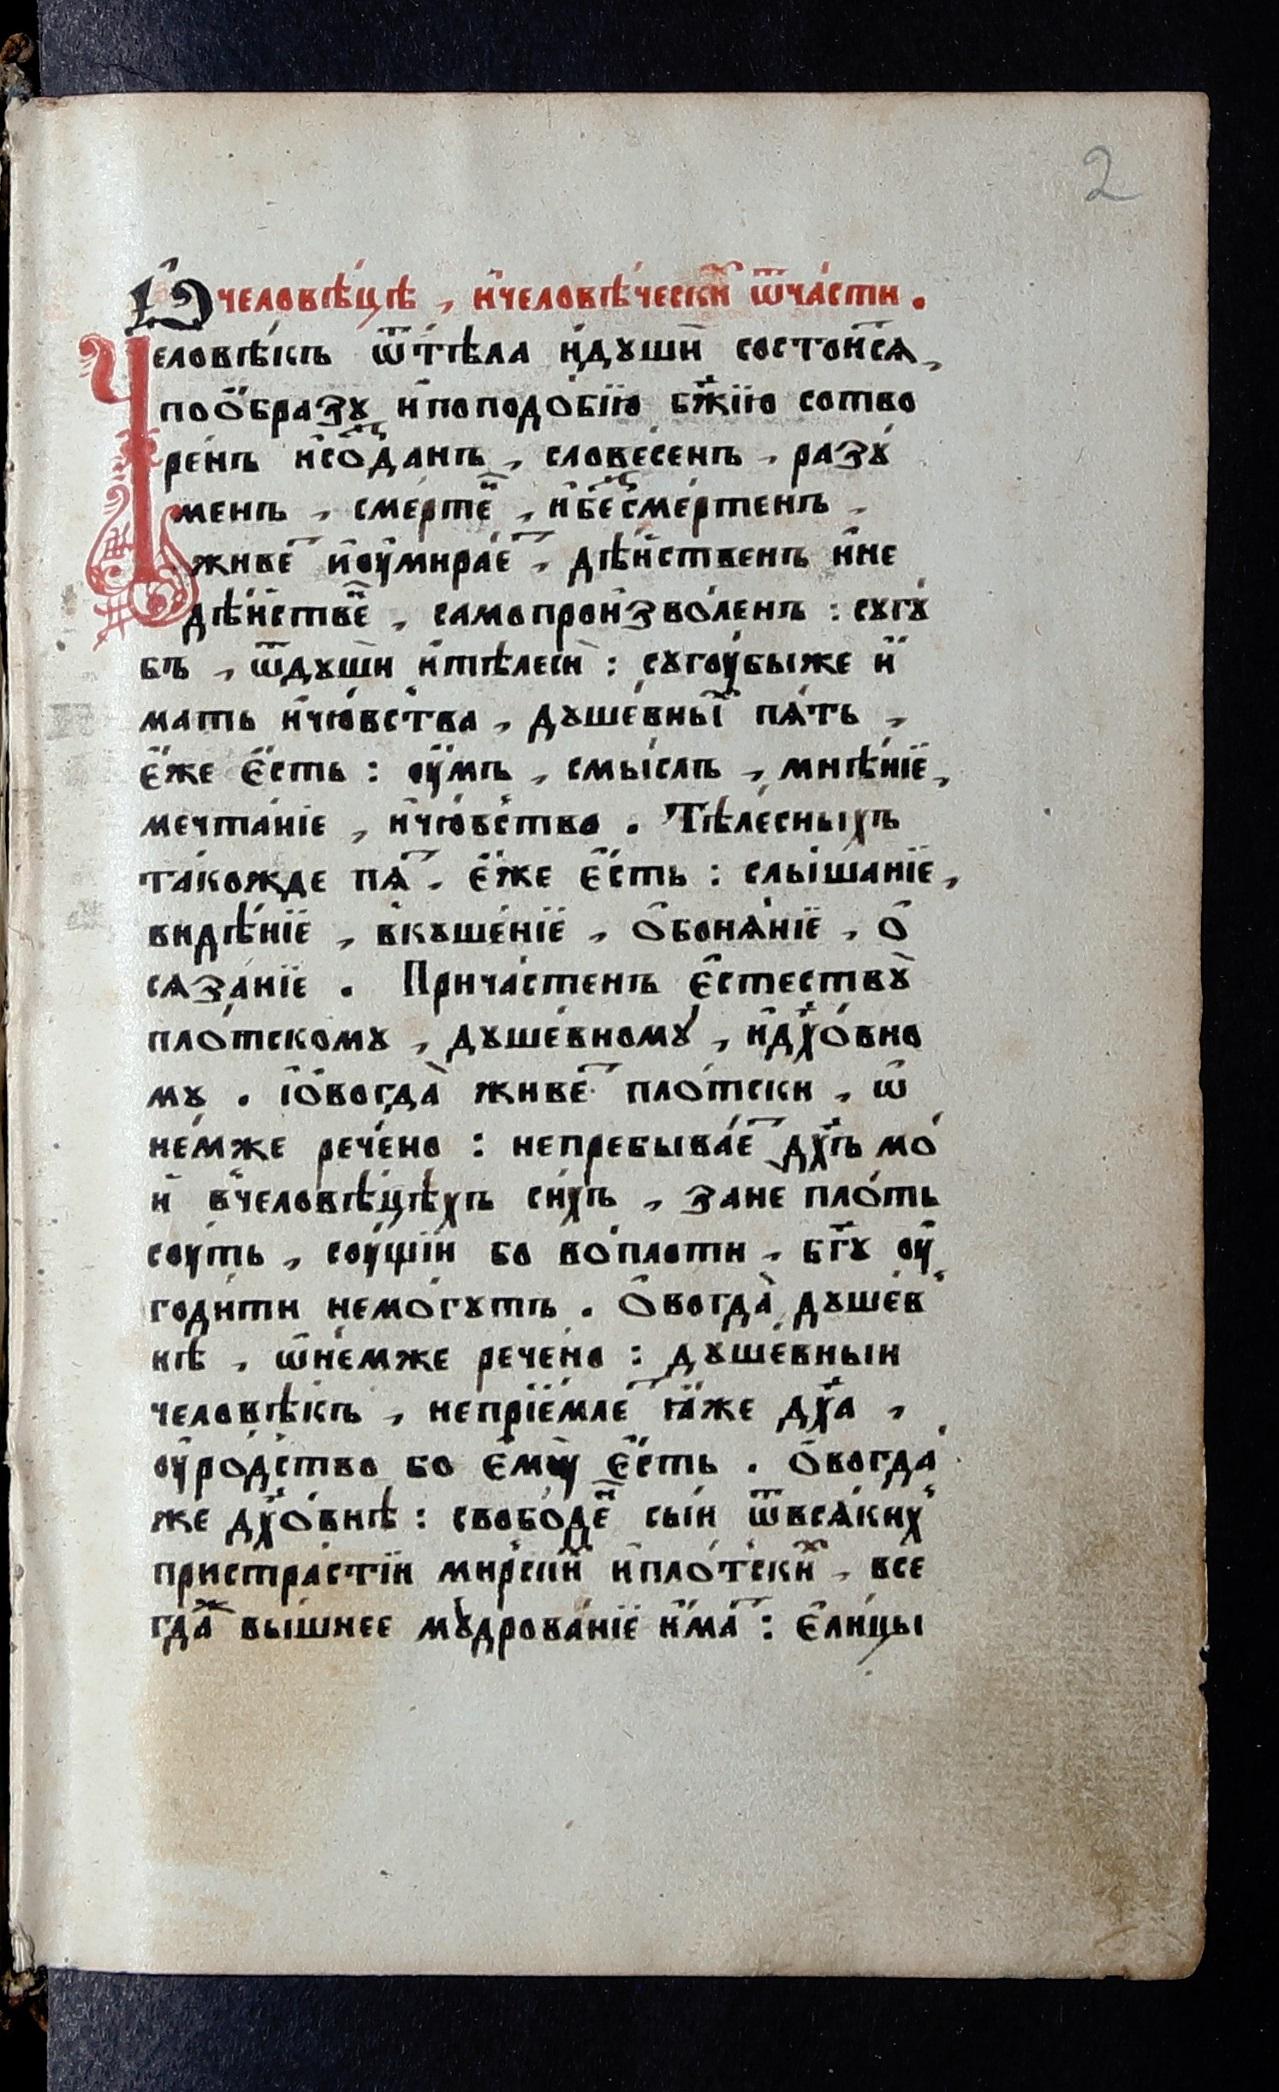 2
Ѽ҆человѣ́цѣ , и҆человѣ́чески̾ ѿча́сти .
Человѣ́къ ѿтѣ́ла и҆души̾ состои́ся ,
поо҆́бразу и҆поподо́бїю бж҃їю сотво
ре́нъ и҆со́зданъ , слове́сенъ , разу́
менъ , сме́ртеⷩ҇ , и҆безсме́ртенъ ,
живе́ⷮ и҆оу҆мира́еⷮ , дѣ́йственъ и҆не
дѣ́йствеⷩ҇ , самопроизво́ленъ : сугу́
бъ , ѿдуши̾ и҆тѣлеси̾ : сугоу́быже и҆́
мать и҆чю́вства , душе́вныⷯ пя́ть ,
є҆́же є҆́сть : оу҆́мъ , смы́слъ , мнѣ́нїе ,
мечта́нїе , и҆чю́вство . Тѣле́сныхъ
та́кожде пя́ⷮ . є҆́же є҆́сть : слы́шанїе ,
видѣ́нїе , вкуше́нїе , о҆боня́нїе , о҆
сяза́нїе . Прича́стенъ є҆стеству̀
пло́тскому , душе́вному , и҆дх҃о́вно
му . Їо҆вогда̀ живе́ⷮ пло́тски , ѡ҆
не́мже рече́но : непребыва́еⷮ дх҃ъ мо́
й вчеловѣ́цѣхъ си́хъ , зане пло́ть
соу́ть , соу́щїи бо во́плоти , бг҃у оу҆
годи́ти немо́гутъ . О҆вогда̀ душе́в
нѣ , ѡ҆не́мже рече́но : душе́вный
человѣ́къ , непрїе́млеⷮ ꙗ҆́же дх҃а ,
оу҆ро́дство бо є҆му̀ є҆́сть . о҆вогда̀
же дх҃о́внѣ : свобо́деⷩ҇ сы́й ѿвся́киⷯ
пристра́стїй мирскиⷯ и҆пло́тскиⷯ , все
гда́ⷤ вы́шнее мудрова́нїе и҆́маⷮ : є҆ли́цы